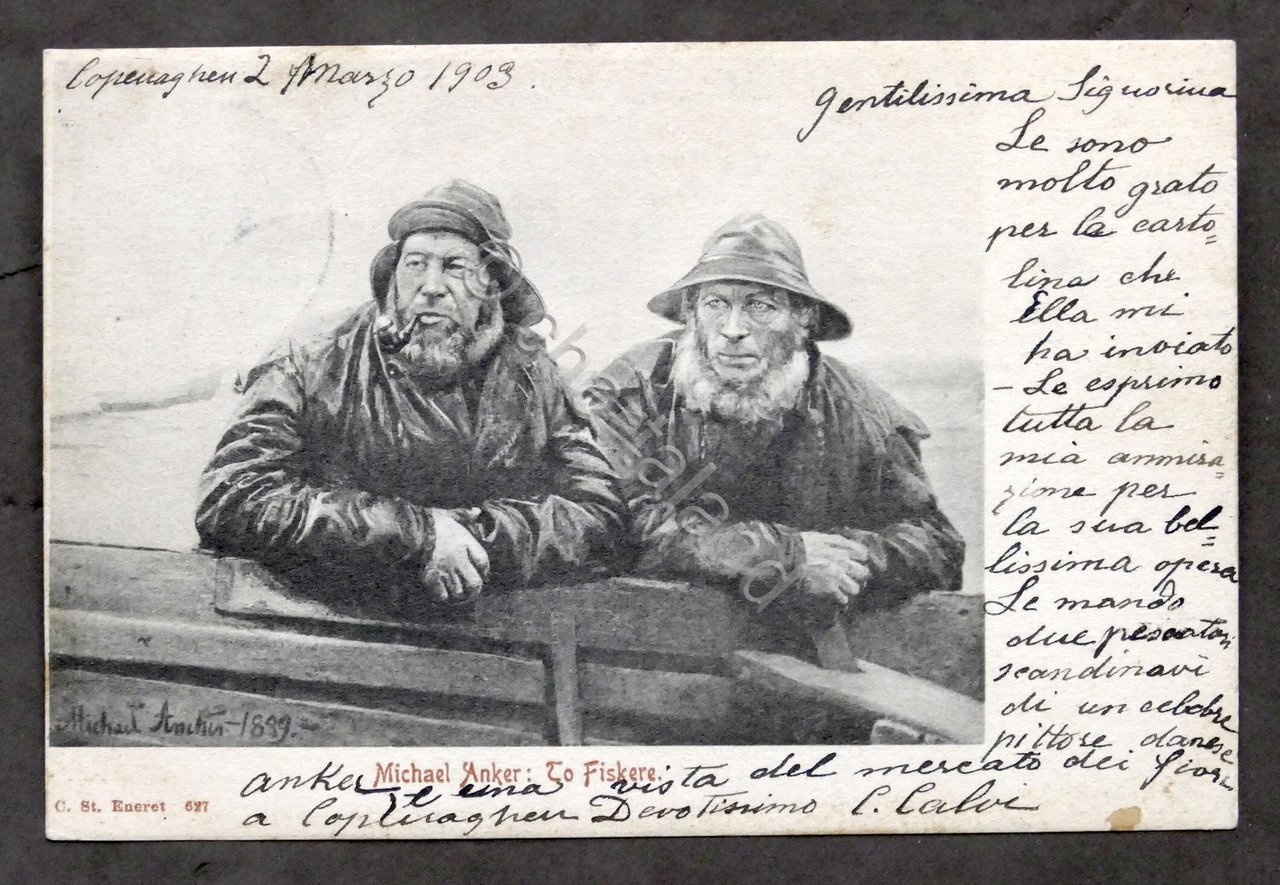 Copenaghen 2 Marzo 1903.
Gentilissima Signorina
Le sono
molto grato
per la carto=
lina che
Ella mi
ha inviato
- Le esprimo
tutta la
mia ammira=
zione per
la sua bel=
lissima opera
Le mando
due pescatori
scandinavi
di un celebre
pittore danese
anker e una vista del mercato dei fiori
a Copenaghen Devotissimo C. Calvi
Michael Ancher-1889.
Michael Anker: To Fiskere.
C. St. Eneret 627